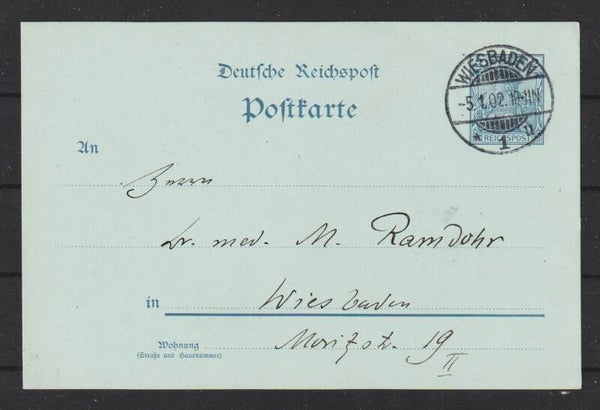 Deutsche Reichspost
Postkarte
WIESBADEN
-5.1.02.
* 1 u
REICHSPOST
An
Herrn
Dr. med. M. Ramdohr
in Wiesbaden
Wohnung Moritzstr. 19 II
(Straße und Hausnummer)